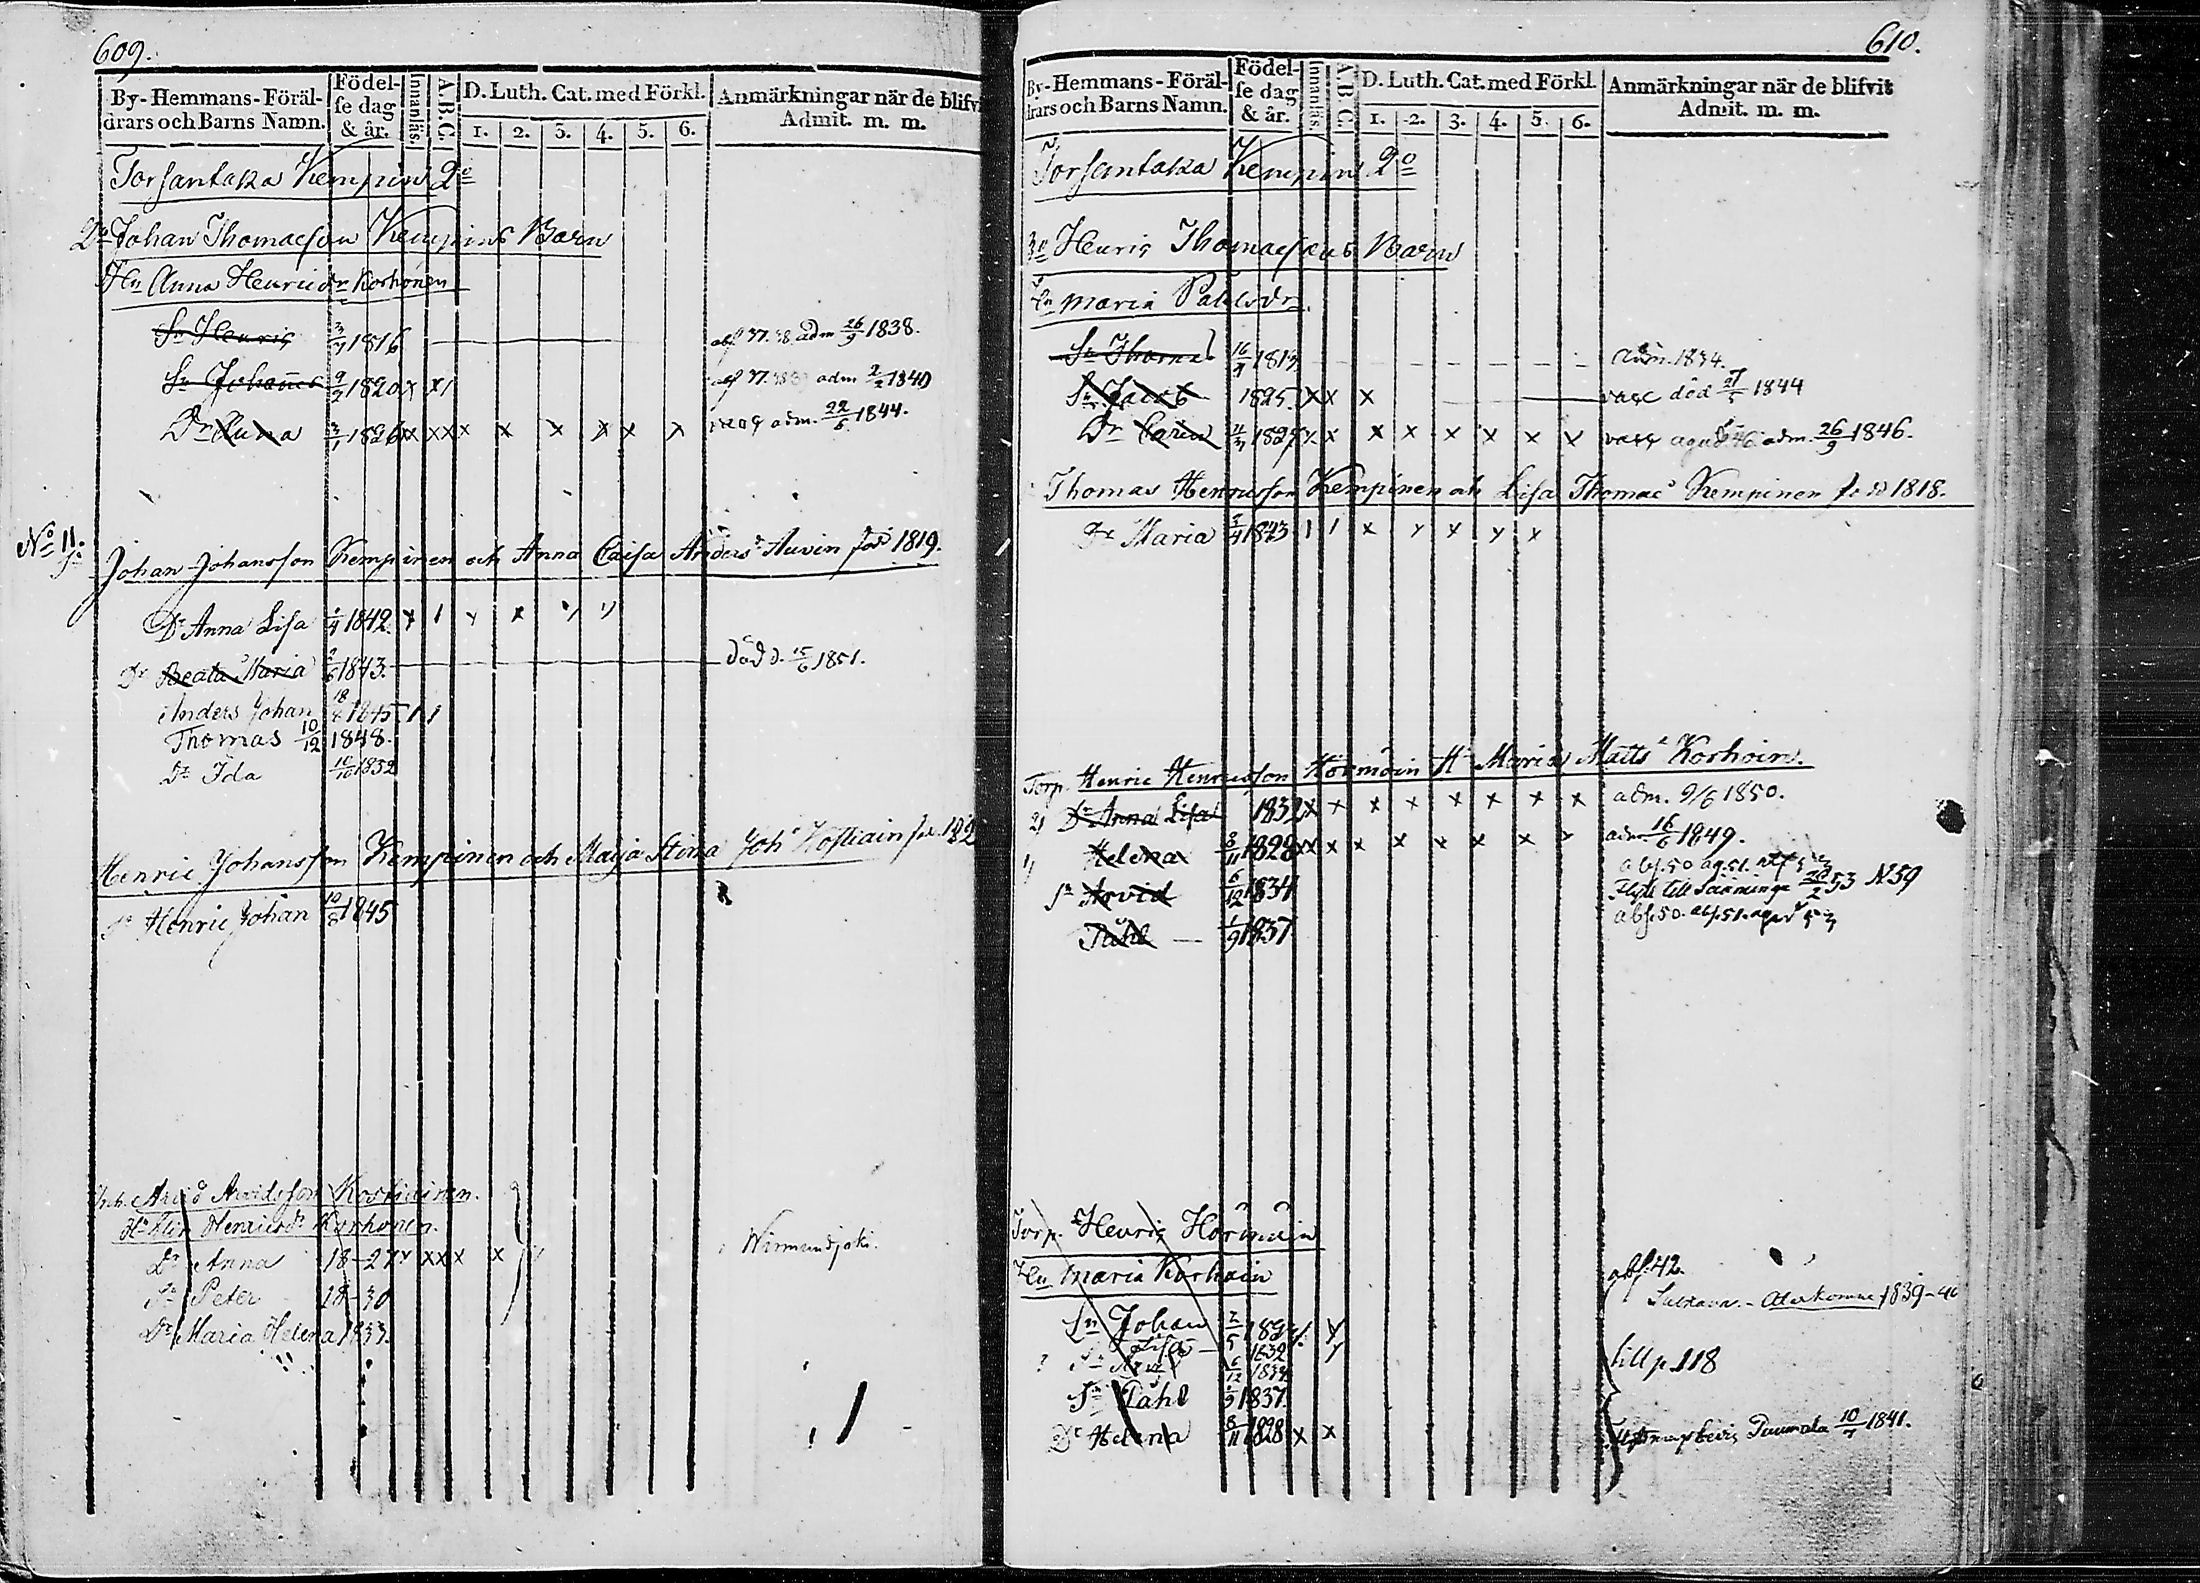 609.
By-Hemmans-Föräl-
drars och Barns Namn.
Födel-
se dag
& år.
Innanläs.
A.B.C.
D. Luth. Cat. med Förkl.
1. 2. 3. 4. 5. 6.
Anmärkningar när de blifvi
Admit. m. m.
Torsantaka Kempin 2o
2o Johan Thomaeson Kempins Barn
Hu Anna Henricdr Korhonen
Sn Henric 3/7 1816 abs 37. 38 adm 26/9 1838.
Sn Johannes 9/7 1820 x x / abs 37. adm 2/2 1840
Dr Anna 3/7 1826 x x x x x x x x x x adm. 22/6 1844.
No 11.
Johan Johansson Kempinen och Anna Caisa Anders dr Auvin född 1819.
Dr Anna Lisa 1/4 1842. x / x x
Dr Beata Maria 2/6 1843. död d. 15/6 1851.
Anders Johan 18/8 1845 / /
Thomas 10/12 1848.
Dr Ida 16/10 1852
Henric Johansson Kempinen och Maija Stina Joh. Kostiain föd. 182
Sn Henric Johan 10/8 1845
Inh. Arvid Arvidsson Kostiainen.
Hu Elin Henricsdr Korhonen.
Dr Anna 18-27 x x x x x Wirmundjoki.
Sn Peter 18-30
Dr Maria Helena 1833.
610.
By-Hemmans-Föräl-
drars och Barns Namn.
Födel-
se dag
& år.
Innanläs.
A.B.C.
D. Luth. Cat. med Förkl.
1. 2. 3. 4. 5. 6.
Anmärkningar när de blifvit
Admit. m. m.
Torsantaka Kempin 2o
3o Henric Thomaesons Barn
Hu Maria Påhlsdr
Sn Thomas 16/7 1813 adm. 1834.
Sn Jacob 1825. x x x vacc död 27/5 1844
Dr Carin 11/7 1827 x x x x x x x x vacc adm. 26/9 1846.
Thomas Henricsson Kempinen och Lisa Thomae dr Kempinen född 1818.
Dr Maria 3/4 1843 / / x x x x x
Torp. Henric Henricsson Hörmöin H. Maria Matts dr Korhoin.
2) Dr Anna Lisa 1832 x x x x x x x x adm. 9/6 1850.
1) Helena 8/11 1828 x x x x x x x x x adm. 16/6 1849.
abs. 50 ag. 51.
Sn Arvid 6/12 1834 Flytt till Sääminge 20/2 53 N 59
Påhl 1/9 1837. abs. 50. abs. 51.
Torp. Henric Hörmöin
Hu Maria Korhoin abs. 42.
Sulkava. - Återkomne 1839-40
Sn Johan 2/5 182
Lisa 1832
Sn Arvid 6/12 1834 till p. 118
Sn Påhl 1/9 1837.
Dr Helena 8/11 1828 x x Puumala 10/7 1841.